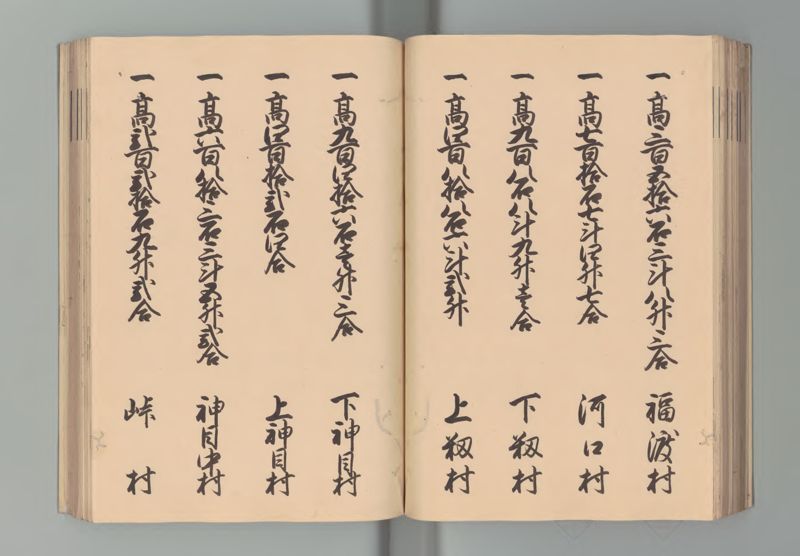 一 高三百五拾六石三斗八升三合 福渡村
一 高七百拾石七斗四升七合 河口村
一 高九百八石八斗九升壱合 下籾村
一 高四百八拾八石六斗弐升 上籾村
一 高九百四拾六石壱升三合 下神目村
一 高四百拾弐石四合 上神目村
一 高六百八拾三石三斗五升弐合 神目中村
一 高弐百弐拾石九升弐合 峠村